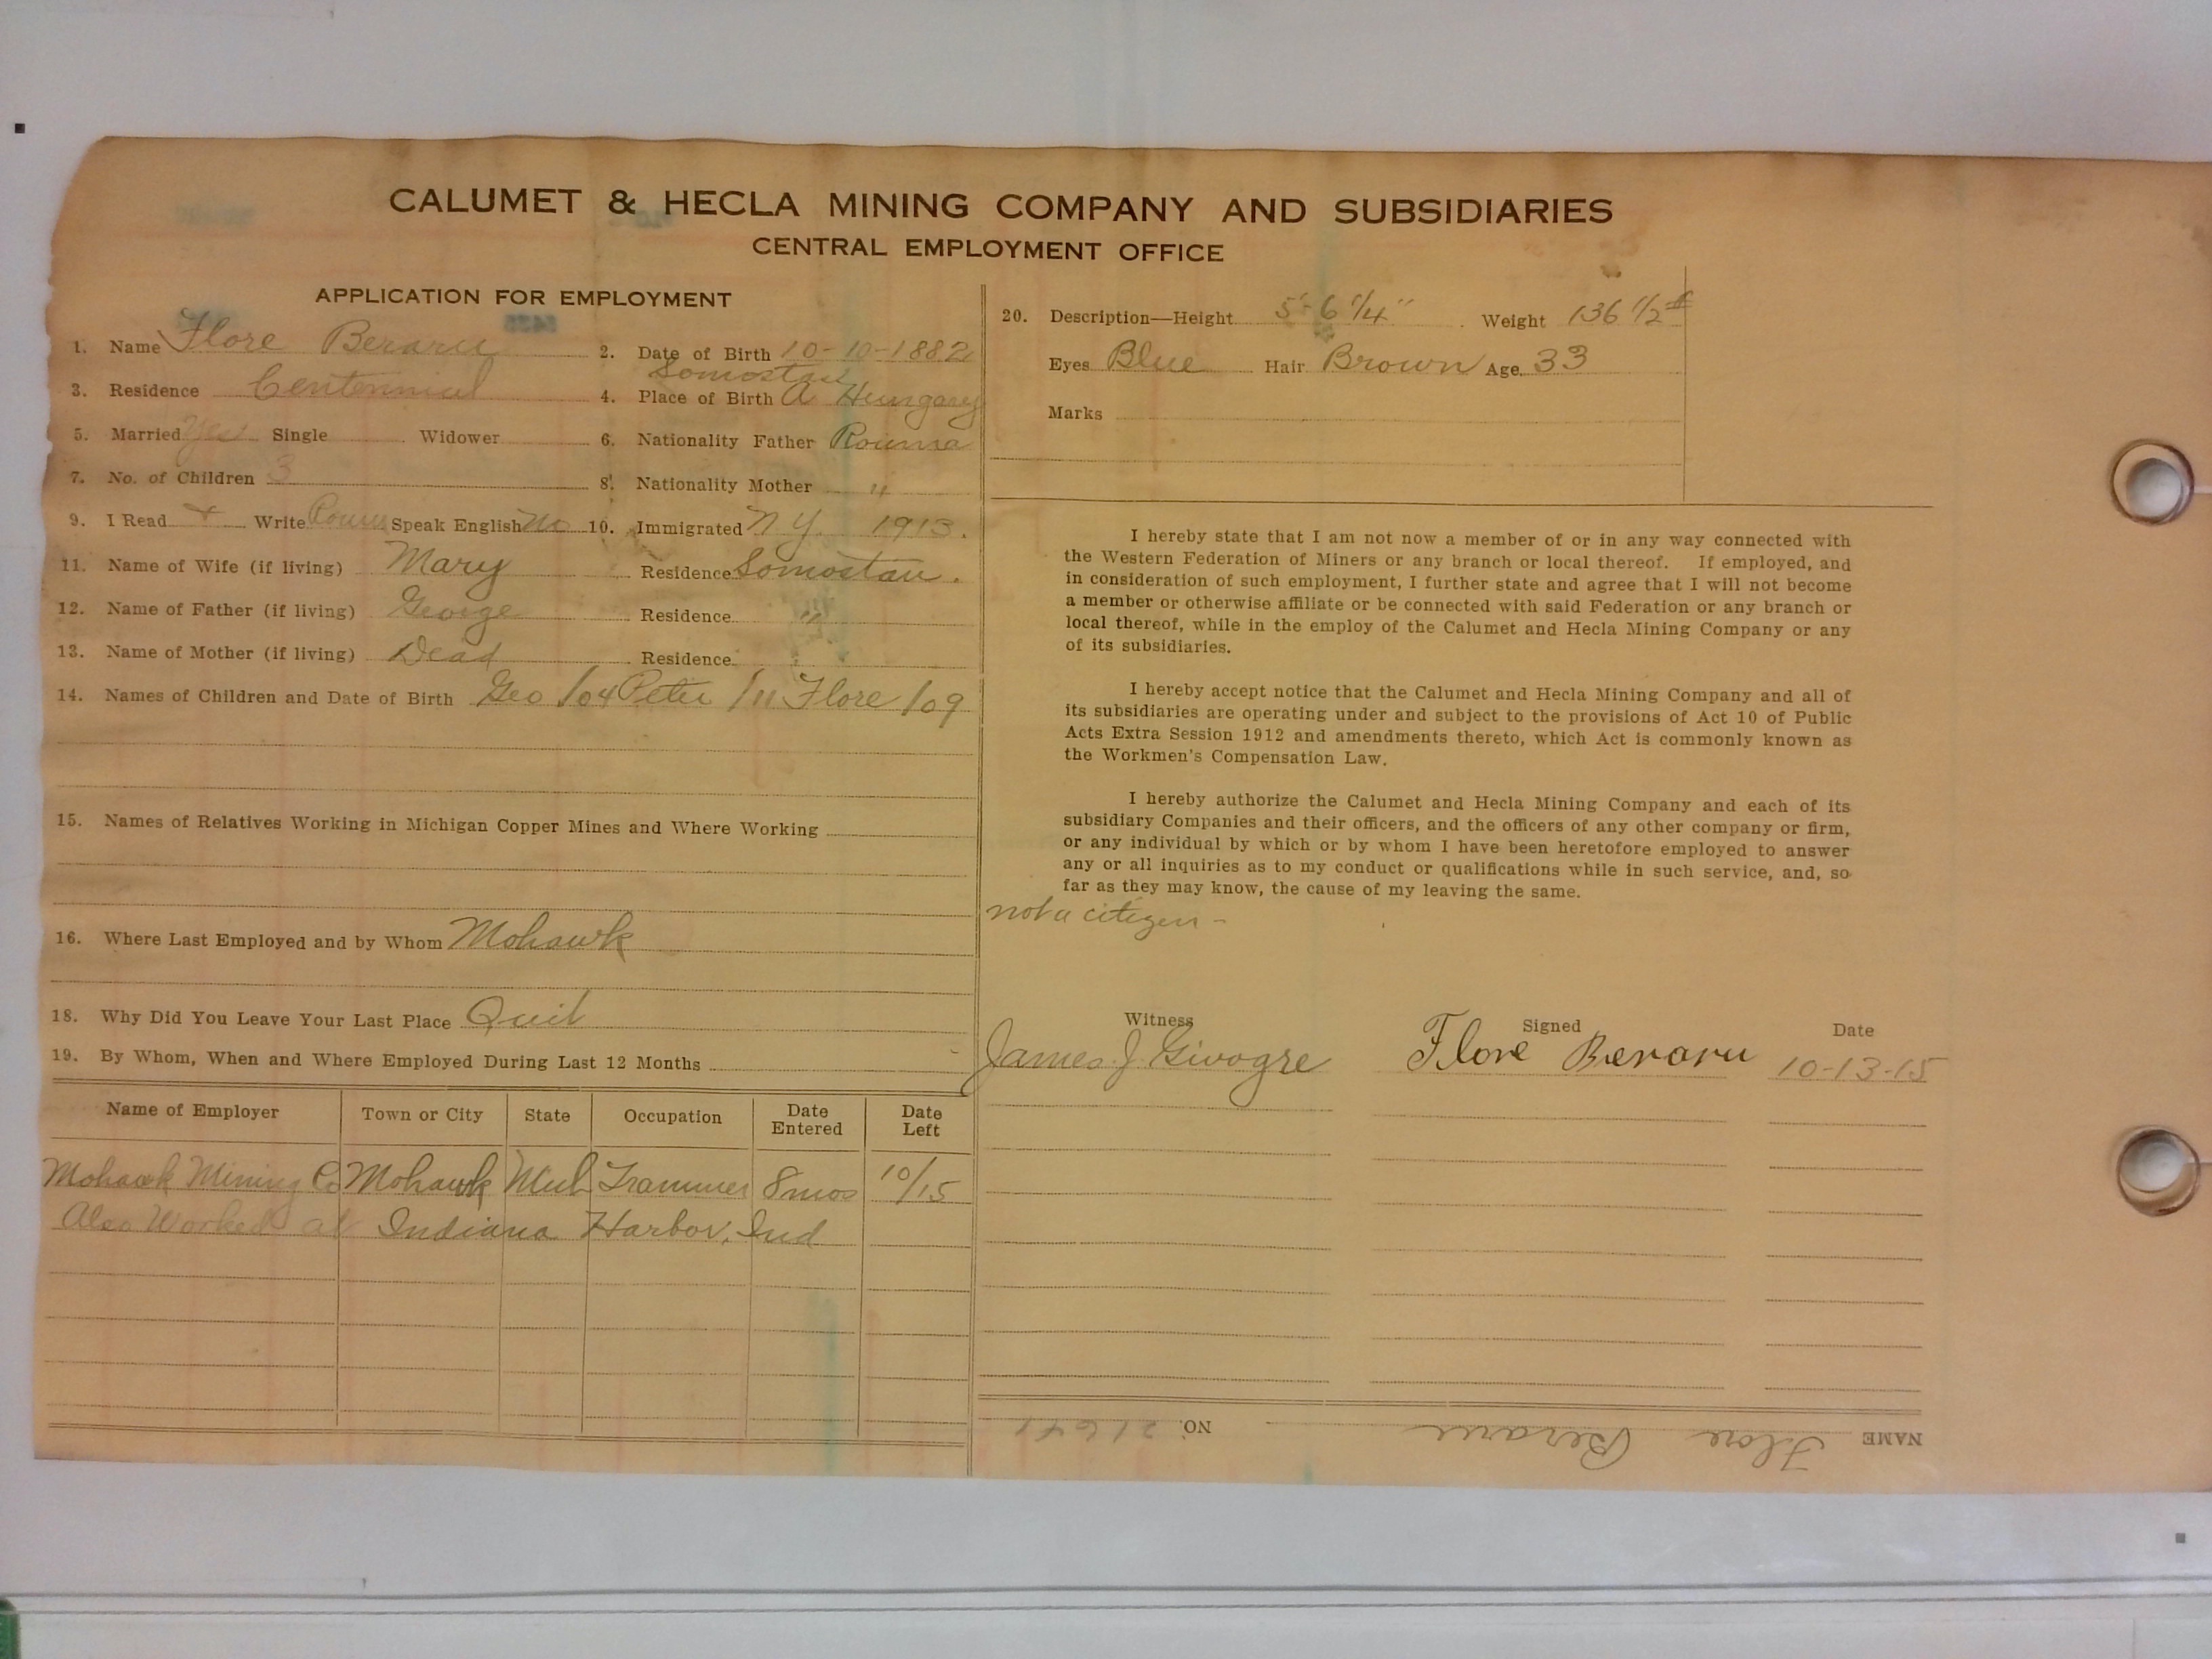 CALUMET & HECLA MINING COMPANY AND SUBSIDIARIES
CENTRAL EMPLOYMENT OFFICE
APPLICATION FOR EMPLOYMENT
1. Name Flore Beraru 2. Date of Birth 10-10-1882
Somostau
3. Residence Centennial 4. Place of Birth A Hungary
5. Married Yes Single Widower 6. Nationality Father Rouma
7. No. of Children 3 8. Nationality Mother "
9. I Read + Write Roum Speak English No 10. Immigrated N Y. 1913.
11. Name of Wife (if living) Mary Residence Somostau.
12. Name of Father (if living) George Residence "
13. Name of Mother (if living) Dead Residence
14. Names of Children and Date of Birth Geo /04 Peter /11 Flore /09
15. Names of Relatives Working in Michigan Copper Mines and Where Working
16. Where Last Employed and by Whom Mohawk
18. Why Did You Leave Your Last Place Quit
19. By Whom, When and Where Employed During Last 12 Months
Name of Employer Town or City State Occupation Date Entered Date Left
Mohawk Mining Co Mohawk Mich Trammer 8 mos 10/15
Also Worked at Indiana Harbor, Ind
20. Description—Height 5'-6 1/4" Weight 136 1/2 #
Eyes Blue Hair Brown Age 33
Marks
I hereby state that I am not now a member of or in any way connected with
the Western Federation of Miners or any branch or local thereof. If employed, and
in consideration of such employment, I further state and agree that I will not become
a member or otherwise affiliate or be connected with said Federation or any branch or
local thereof, while in the employ of the Calumet and Hecla Mining Company or any
of its subsidiaries.
I hereby accept notice that the Calumet and Hecla Mining Company and all of
its subsidiaries are operating under and subject to the provisions of Act 10 of Public
Acts Extra Session 1912 and amendments thereto, which Act is commonly known as
the Workmen's Compensation Law.
I hereby authorize the Calumet and Hecla Mining Company and each of its
subsidiary Companies and their officers, and the officers of any other company or firm,
or any individual by which or by whom I have been heretofore employed to answer
any or all inquiries as to my conduct or qualifications while in such service, and, so
far as they may know, the cause of my leaving the same.
not a citizen -
Witness Signed Date
James J. Givogre Flore Beraru 10-13-15
NAME Flore Beraru NO.